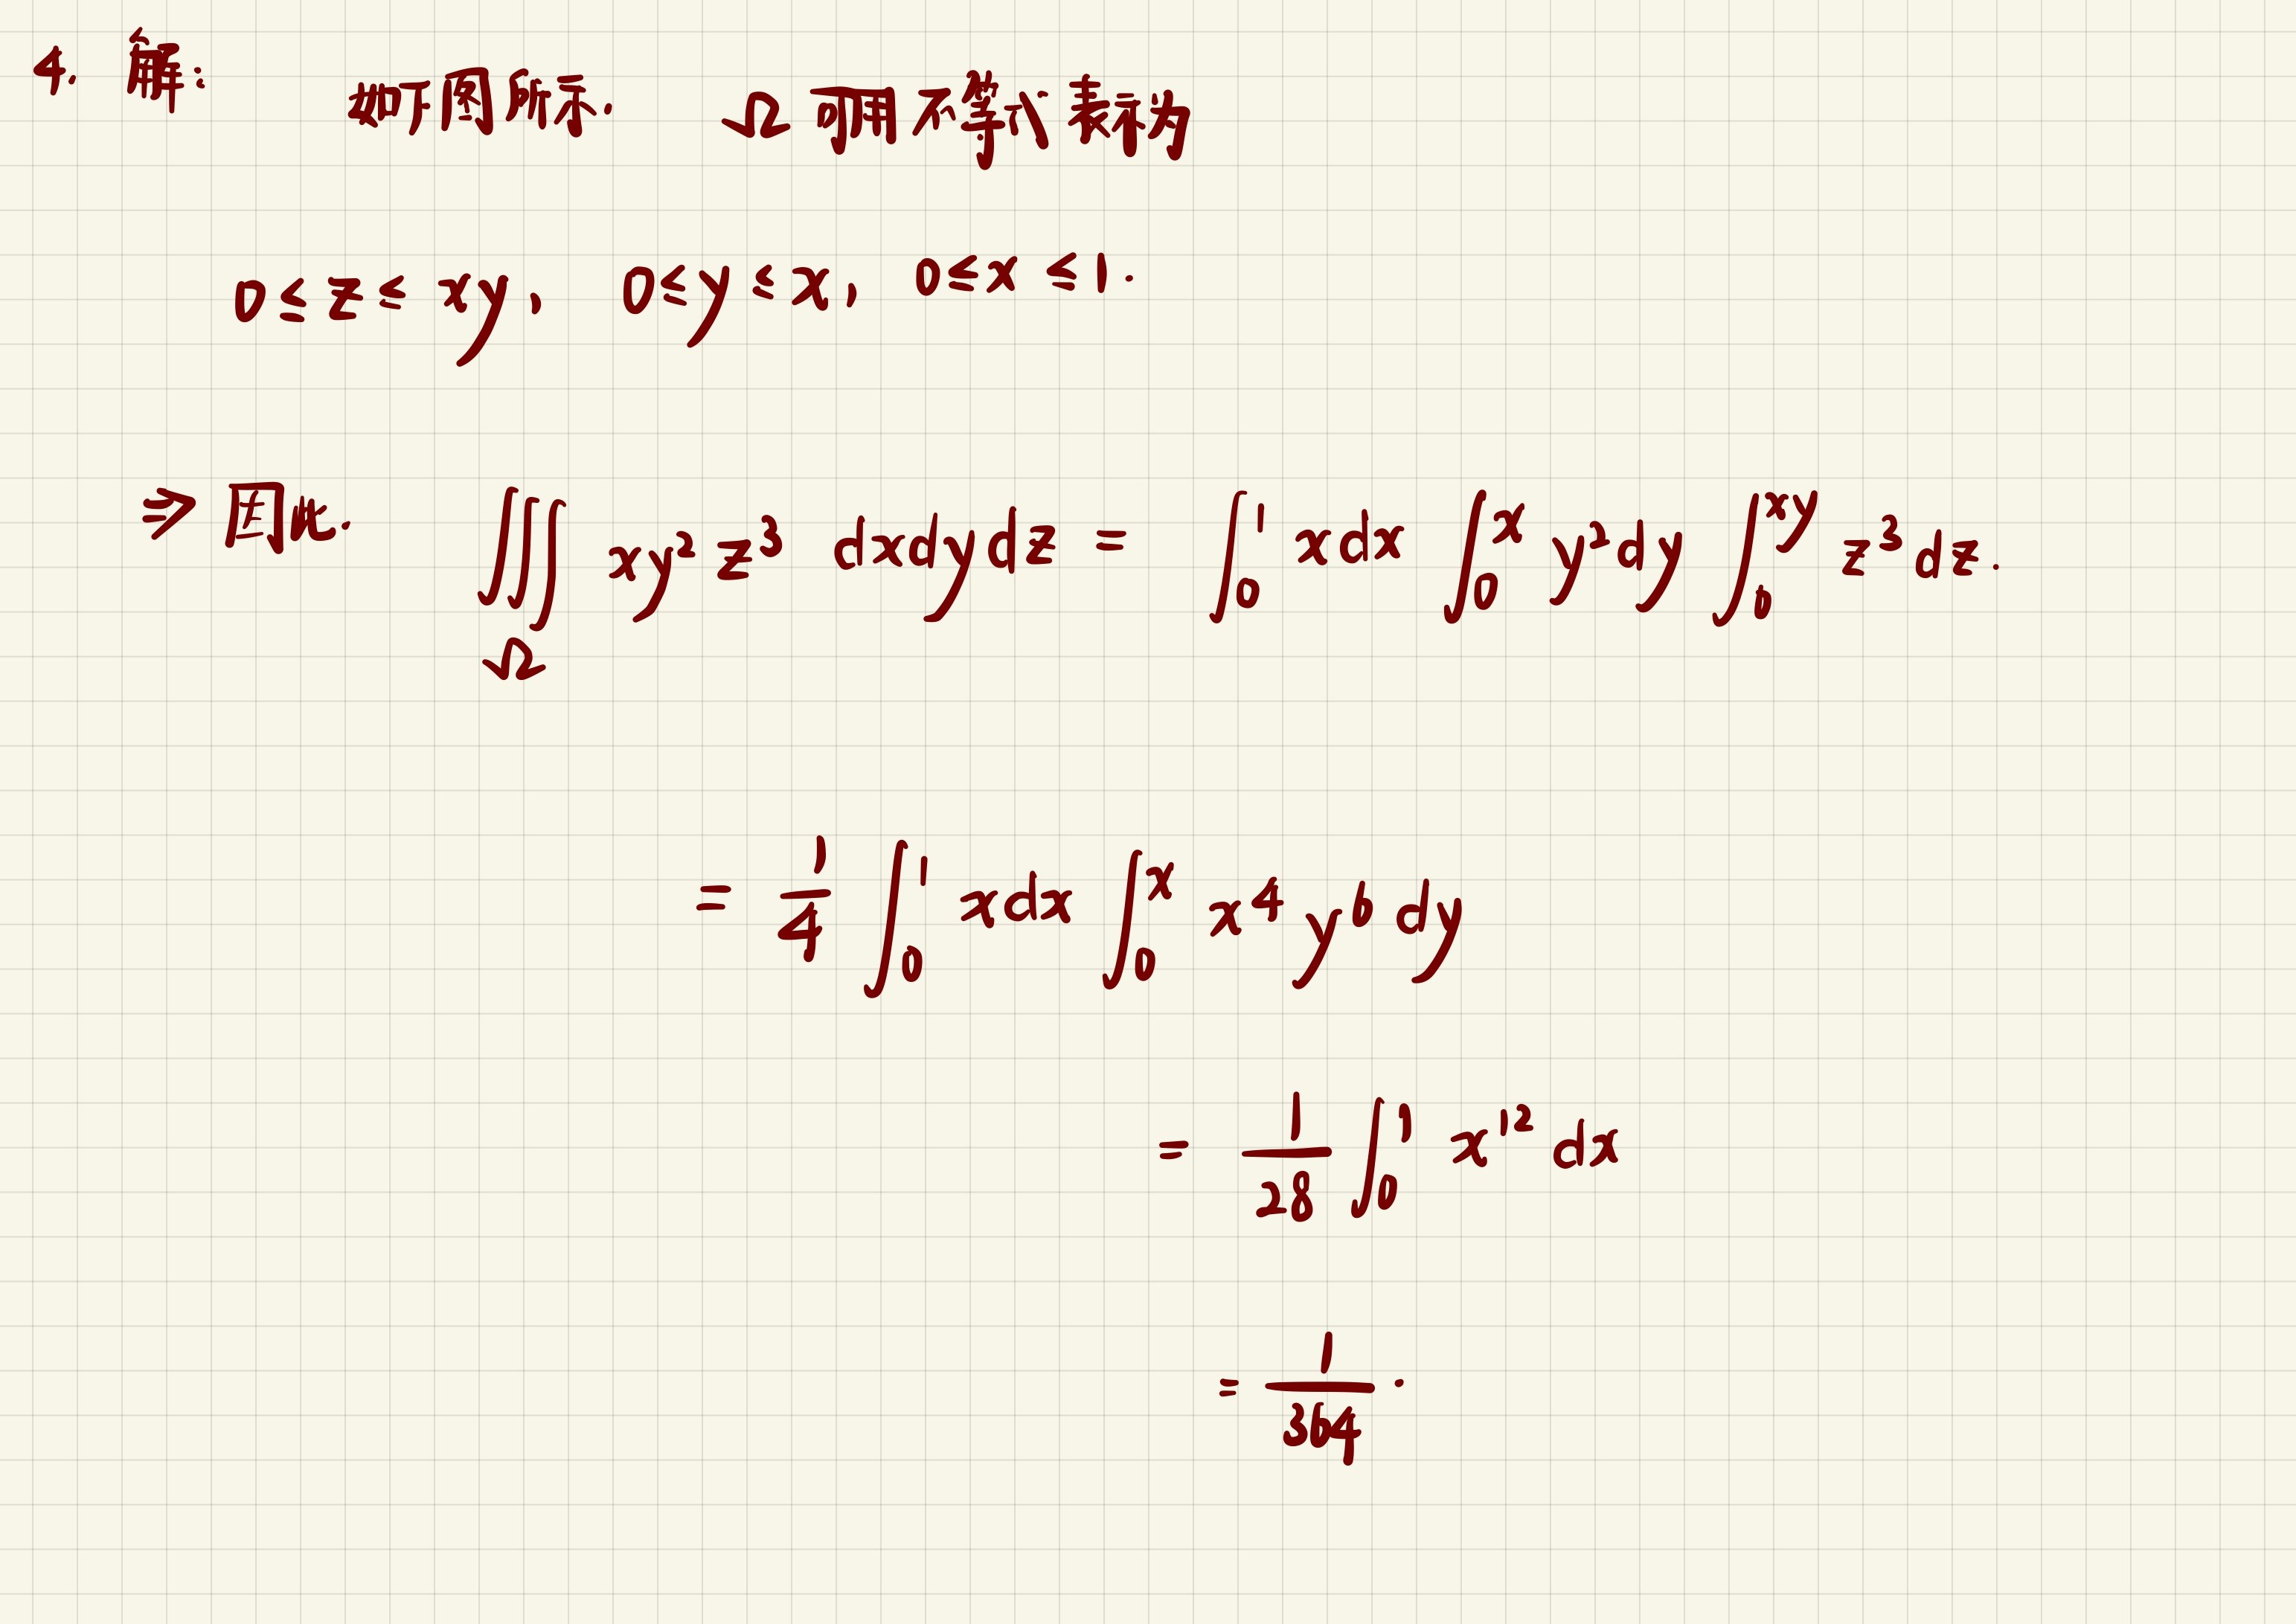 4. 解:
如下图所示. Ω可用不等式表示为
0 ≤ z ≤ xy, 0 ≤ y ≤ x, 0 ≤ x ≤ 1.
⇒ 因此. ∭_Ω xy² z³ dxdydz = ∫₀¹ x dx ∫₀ˣ y² dy ∫₀^{xy} z³ dz.
= 1/4 ∫₀¹ x dx ∫₀ˣ x⁴ y⁶ dy
= 1/28 ∫₀¹ x¹² dx
= 1/364 .